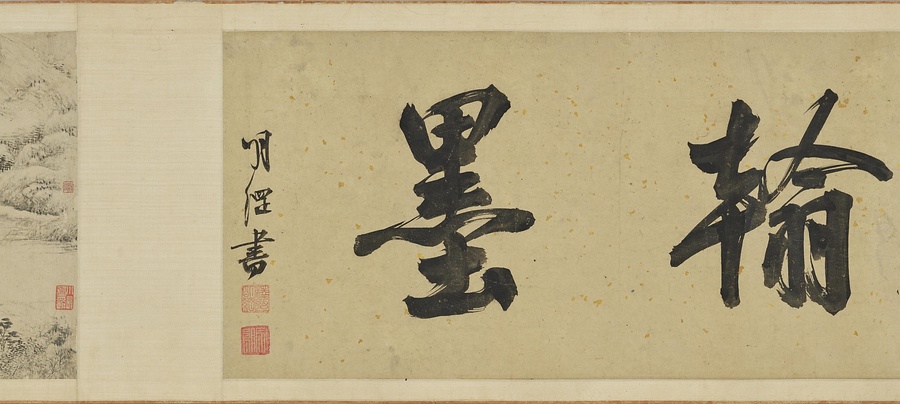 翰墨
明書